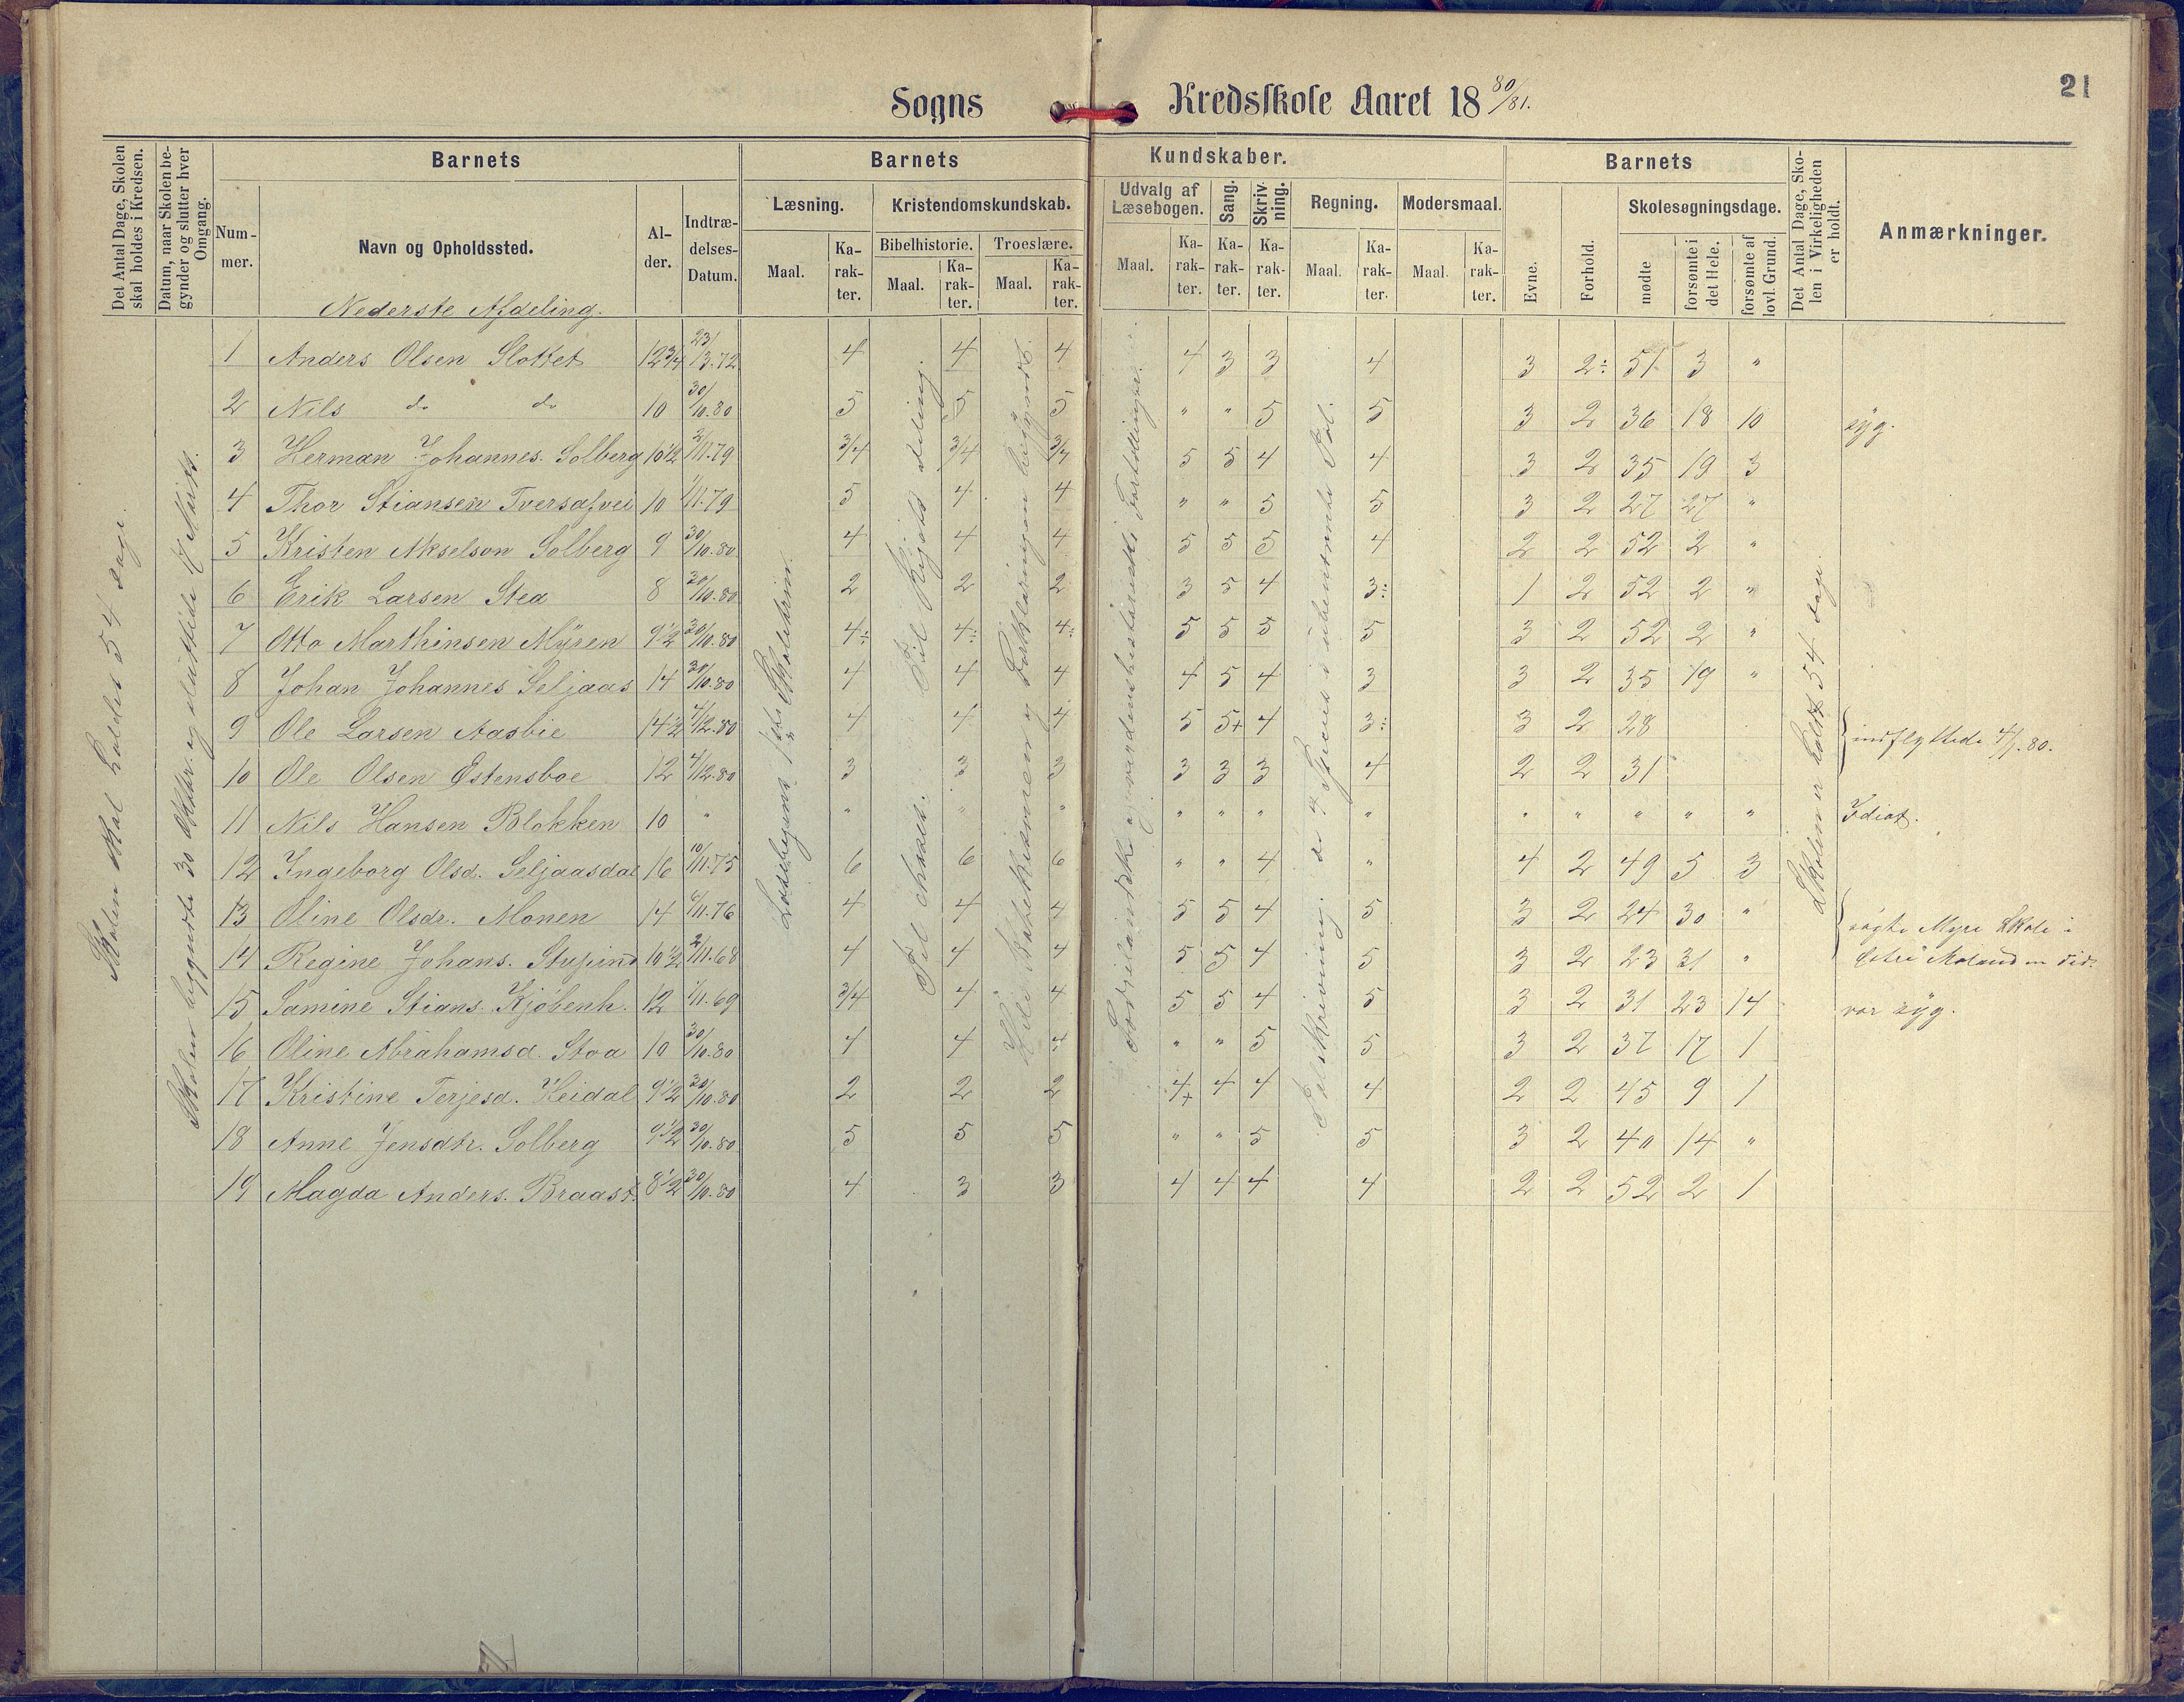 21
Sogns Kredsskole Aaret 18 80/81.
Det Antal Dage, Skolen skal holdes i Kredsen.
Datum, naar Skolen begynder og slutter hver Omgang.
Barnets
Barnets Kundskaber.
Barnets
Det Antal Dage, Skolen i Virkeligheden er holdt.
Anmærkninger.
Nummer.
Navn og Opholdssted.
Alder.
Indtrædelses-Datum.
Læsning.
Kristendomskundskab.
Bibelhistorie.
Troeslære.
Udvalg af Læsebogen.
Sang.
Skrivning.
Regning.
Modersmaal.
Evne.
Forhold.
Skolesøgningsdage.
Maal. Karakter. Maal. Karakter. Maal. Karakter. Maal. Karakter. Karakter. Karakter. Maal. Karakter. Maal. Karakter.
mødte
forsømte i det Hele.
forsømte af lovl. Grund.
Nederste Afdeling.
Skolen skal holdes 54 dage.
Skolen begyndte 30 Oktbr. og sluttede
Skolen er holdt 54 dage
1 Anders Olsen Slottet 12 3/4 23/13.72 4 4 4 4 3 3 4 3 2÷ 51 3 "
2 Nils do do 10 30/10.80 5 5 5 " " 5 5 3 2 36 18 10 syg.
3 Herman Johannes. Solberg 10 1/2 3/11.79 3/4 3/4 3/4 5 5 4 4 3 2 35 19 3
4 Thor Stiansen Tversafvei 10 1/11.79 5 4 4 " " 5 5 3 2 27 27 "
5 Kristen Akselson Solberg 9 30/10.80 4 4 4 5 5 5 4 2 2 52 2 "
6 Erik Larsen Stea 8 30/10.80 2 2 2 3 5 4 3÷ 1 2 52 2 "
7 Otto Marthinsen Myren 9 1/2 30/10.80 4÷ 4÷ 4÷ 5 5 5 5 3 2 52 2 "
8 Johan Johannes Seljaas 14 30/10.80 4 4 4 4 5 4 3 3 2 35 19 "
9 Ole Larsen Aasbie 14 1/2 4/12.80 4 4 4 5 5+ 4 3÷ 3 2 28
10 Ole Olsen Østensboe 12 4/12.80 3 3 3 3 3 3 4 2 2 31
indflyttede 4/1.80.
11 Nils Hansen Blokken 10 " " " " " " " " " " " " " Idiot.
12 Ingeborg Olsd. Seljaasdal 16 10/11.75 6 6 6 " " 4 " 4 2 49 5 3
13 Oline Olsdr. Monen 14 6/11.76 4 4 4 5 5 4 5 3 2 24 30 " søgte Myre Skole i
14 Regine Johans. Stupind 10 1/2 2/11.68 4 4 4 5 5 4 5 3 2 23 31 " Østre Moland en Tid.
15 Samine Stians. Kjøbenh. 12 1/11.69 3/4 4 4 5 5 4 5 3 2 31 23 14 var syg.
16 Oline Abrahamsd. Stoa 10 30/10.80 4 4 4 " " 5 5 3 2 37 17 1
17 Kristine Terjesd. Heidal 9 1/2 30/10.80 2 2 2 4+ 4 4 4 2 2 45 9 1
18 Anne Jensdtr. Solberg 9 1/2 30/10.80 5 5 5 " " 5 5 3 2 40 14 "
19 Magda Anders. Braast. 8 1/2 30/10.80 4 3 3 4 4 4 4 2 2 52 2 1